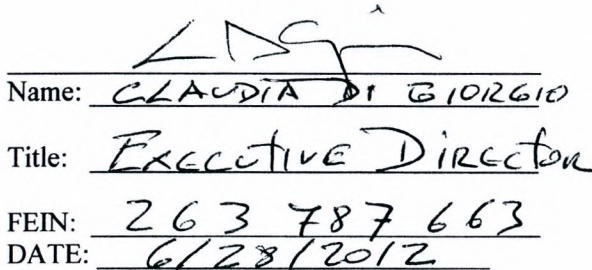 Name: CLAUDIA DI GIORGIO
Title: EXECUTIVE DIRECTOR
FEIN: 263 787 663
DATE: 6/28/2012